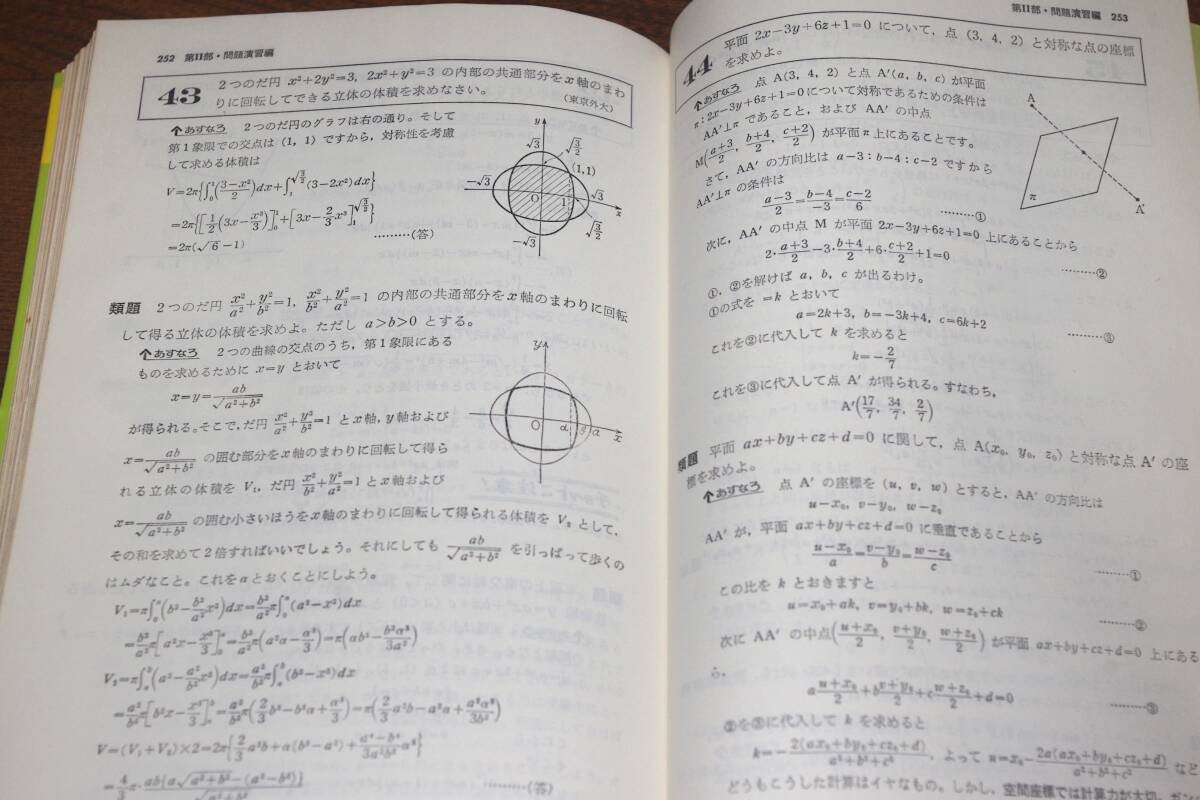 252 第II部・問題演習編
43
2つのだ円 x²+2y²=3, 2x²+y²=3 の内部の共通部分をx軸のまわ
りに回転してできる立体の体積を求めなさい。 (東京外大)
↑あすなろ 2つのだ円のグラフは右の通り。そして
第1象限での交点は (1, 1) ですから, 対称性を考慮
して求める体積は
V=2π{∫₀¹((3-x²)/2)dx+∫₁^√(3/2)(3-2x²)dx}
=2π{[1/2(3x-x³/3)]₀¹+[3x-2/3x³]₁^√(3/2)}
=2π(√6-1) ………(答)
y
√3
√(3/2)
(1,1)
-√3
O
1
√3
x
√(3/2)
-√3
類題 2つのだ円 x²/a²+y²/b²=1, x²/b²+y²/a²=1 の内部の共通部分をx軸のまわりに回転
して得る立体の体積を求めよ。ただし a>b>0 とする。
↑あすなろ 2つの曲線の交点のうち, 第1象限にある
ものを求めるために x=y とおいて
x=y=ab/√(a²+b²)
が得られる。そこで, だ円 x²/a²+y²/b²=1 とx軸, y軸および
x=ab/√(a²+b²) の囲む部分をx軸のまわりに回転して得ら
れる立体の体積を V₁, だ円 x²/b²+y²/a²=1とx軸および
x=ab/√(a²+b²) の囲む小さいほうをx軸のまわりに回転して得られる体積を V₂ として,
その和を求めて2倍すればいいでしょう。それにしても ab/√(a²+b²) を引っぱって歩くの
はムダなこと。これをαとおくことにしよう。
y
O
α
β
a
x
V₁=π∫₀^α(b²-b²/a²x²)dx=b²/a²π∫₀^α(a²-x²)dx
=b²/a²π[a²x-x³/3]₀^α=b²/a²π(a²α-α³/3)=π(αb²-b²α³/3a²)
V₂=π∫ₐ^b(a²-a²/b²x²)dx=a²/b²π∫ₐ^b(b²-x²)dx
=a²/b²π[b²x-x³/3]ₐ^b=a²/b²π(2/3b³-b²α+α³/3)=π(2/3a²b-a²α+a²α³/3b²)
V=(V₁+V₂)×2=2π{2/3a²b+α(b²-a²)+(a⁴-b⁴)/3a²b²α³}
=4/3π·ab{a√(a²+b²)-(a²-b²)}/√(a²+b²) ………(答)
第II部・問題演習編 253
44
平面 2x-3y+6z+1=0 について, 点 (3, 4, 2) と対称な点の座標
を求めよ。
↑あすなろ 点 A(3, 4, 2) と点 A′(a, b, c) が平面
π:2x-3y+6z+1=0について対称であるための条件は
AA′⊥π であること, および AA′ の中点
M((a+3)/2, (b+4)/2, (c+2)/2) が平面π上にあることです。
さて, AA′ の方向比は a-3:b-4:c-2 ですから
AA′⊥π の条件は
(a-3)/2=(b-4)/-3=(c-2)/6 ………①
A
π
A′
次に, AA′ の中点 M が平面 2x-3y+6z+1=0 上にあることから
2·(a+3)/2-3·(b+4)/2+6·(c+2)/2+1=0 ………②
①, ②を解けば a, b, c が出るわけ。
①の式を =k とおいて
a=2k+3, b=-3k+4, c=6k+2 ………③
これを②に代入して k を求めると
k=-2/7
これを③に代入して点 A′ が得られる。すなわち,
A′(17/7, 34/7, 2/7)
類題 平面 ax+by+cz+d=0 に関して, 点 A(x₀, y₀, z₀) と対称な点 A′ の座
標を求めよ。
↑あすなろ 点 A′ の座標を (u, v, w) とすると, AA′ の方向比は
u-x₀, v-y₀, w-z₀
AA′ が, 平面 ax+by+cz+d=0 に垂直であることから
(u-x₀)/a=(v-y₀)/b=(w-z₀)/c ………①
この比を k とおきますと
u=x₀+ak, v=y₀+bk, w=z₀+ck ………②
次に AA′ の中点((u+x₀)/2, (v+y₀)/2, (w+z₀)/2) が平面 ax+by+cz+d=0 上にある
ら,
a(u+x₀)/2+b(v+y₀)/2+c(w+z₀)/2+d=0 ………③
②を③に代入して k を求めると
k=-2(ax₀+by₀+cz₀+d)/(a²+b²+c²), よって u=x₀-2a(ax₀+by₀+cz₀+d)/(a²+b²+c²) など
どうもこうした計算はイヤなもの。しかし, 空間座標では計算力が大切。